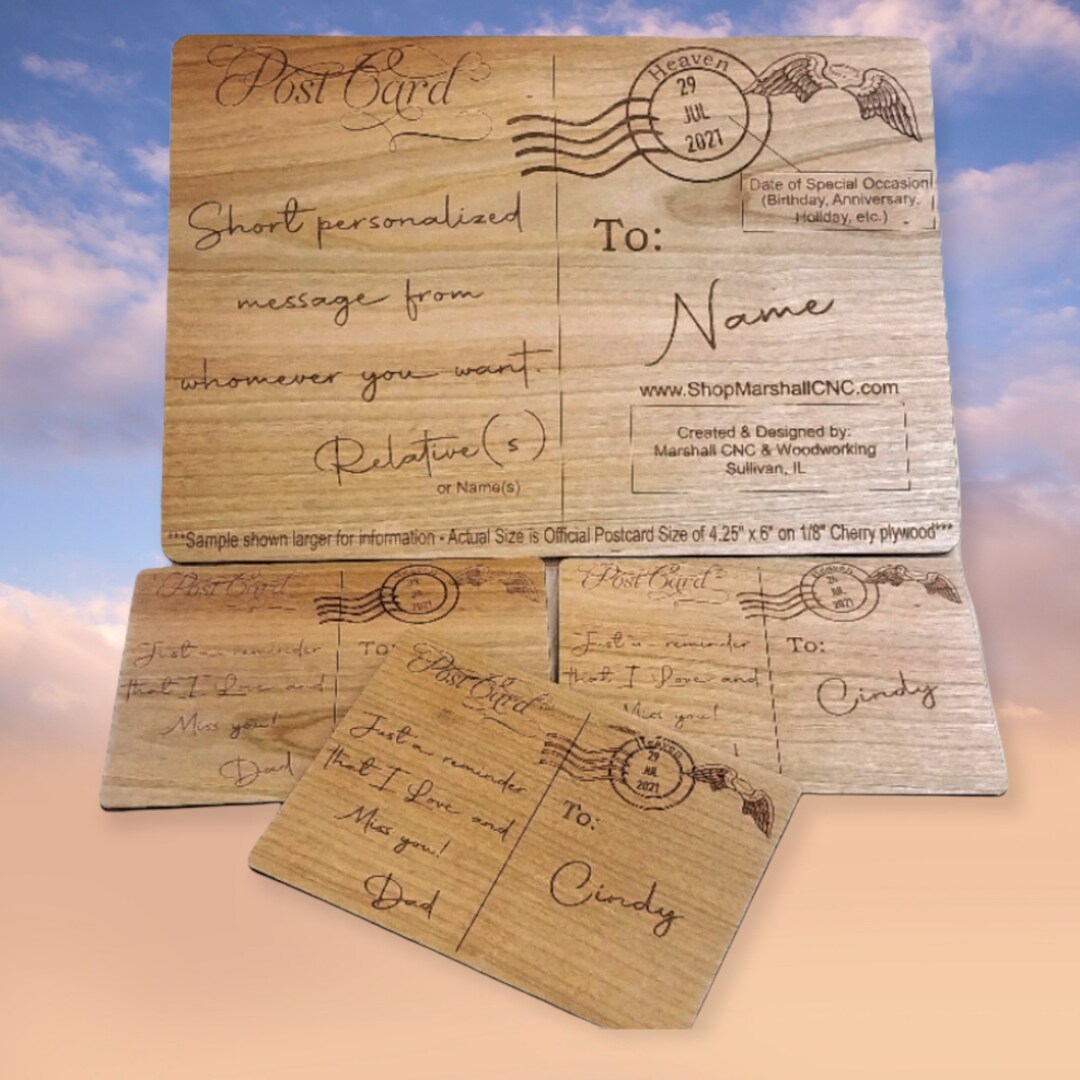 Post Card
Heaven
29
JUL
2021
Date of Special Occasion
(Birthday, Anniversary,
Holiday, etc.)
Short personalized
message from
whomever you want.
Relative(s)
or Name(s)
To:
Name
www.ShopMarshallCNC.com
Created & Designed by:
Marshall CNC & Woodworking
Sullivan, IL
***Sample shown larger for information - Actual Size is Official Postcard Size of 4.25" x 6" on 1/8" Cherry plywood***
Post Card
2021
Just a reminder
that I Love and
Miss you!
Dad
To:
Post Card
Heaven
JUL
2021
Just a reminder
that I Love and
Miss you!
To:
Cindy
Post Card
Heaven
29
JUL
2021
Just a reminder
that I Love and
Miss you!
Dad
To:
Cindy